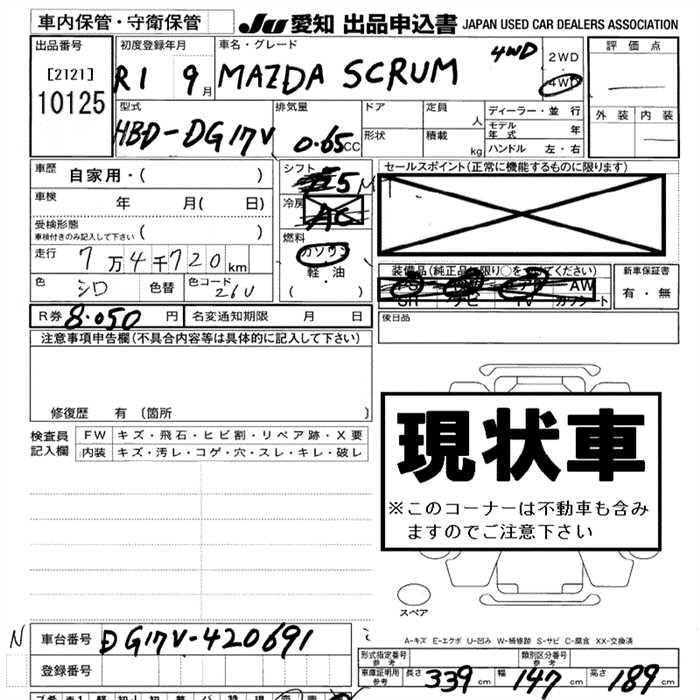 車内保管・守衛保管 JU 愛知 出品申込書 JAPAN USED CAR DEALERS ASSOCIATION
出品番号 初度登録年月 車名・グレード 評価点
[2121] R1 9月 MAZDA SCRUM 4WD 2WD
10125 4WD
型式 排気量 ドア 定員 人 ディーラー・並行 外装 内装
HBD-DG17V 0.65CC 形状 積載 kg モデル年式 年
ハンドル 左・右
車歴 自家用・( ) シフト 5 セールスポイント(正常に機能するものに限ります)
車検 年 月( 日) 冷房 AC
受検形態 ( )
車検付きのみ記入して下さい
燃料 ガソリン
走行 7万4千720km 軽・油 装備品(純正品に限り○をつけてください) 新車保証書
色 シロ 色替 色コード 26U ( ) AW 有・無
SR ナビ TV カセット
R券 8.050円 名変通知期限 月 日 後日品
注意事項申告欄(不具合内容等は具体的に記入して下さい)
修復歴 有 〔箇所 〕
検査員 FW キズ・飛石・ヒビ割・リペア跡・X要
記入欄 内装 キズ・汚レ・コゲ・穴・スレ・キレ・破レ
現状車
※このコーナーは不動車も含み
ますのでご注意下さい
スペア
N 車台番号 DG17V-420691
A-キズ E-エクボ U-凹み W-補修跡 S-サビ C-腐食 XX-交換済
登録番号 形式指定番号 参考 類別区分番号 参考
車庫証明用 参考 長さ 339cm 幅 147cm 高さ 189cm